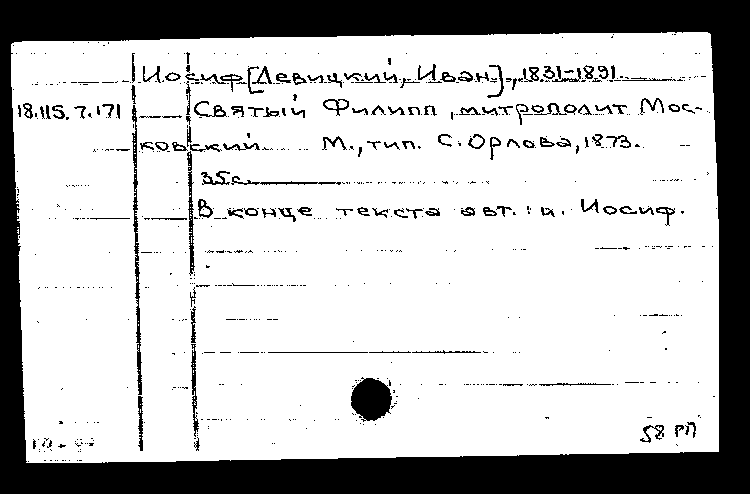 Иосиф [Левицкий, Иван]., 1831-1891.
18.115.7.171 Святый Филипп, митрополит Мос-
ковский М., тип. С. Орлова, 1873.
35 с.
В конце текста авт.: и. Иосиф.
58 РП